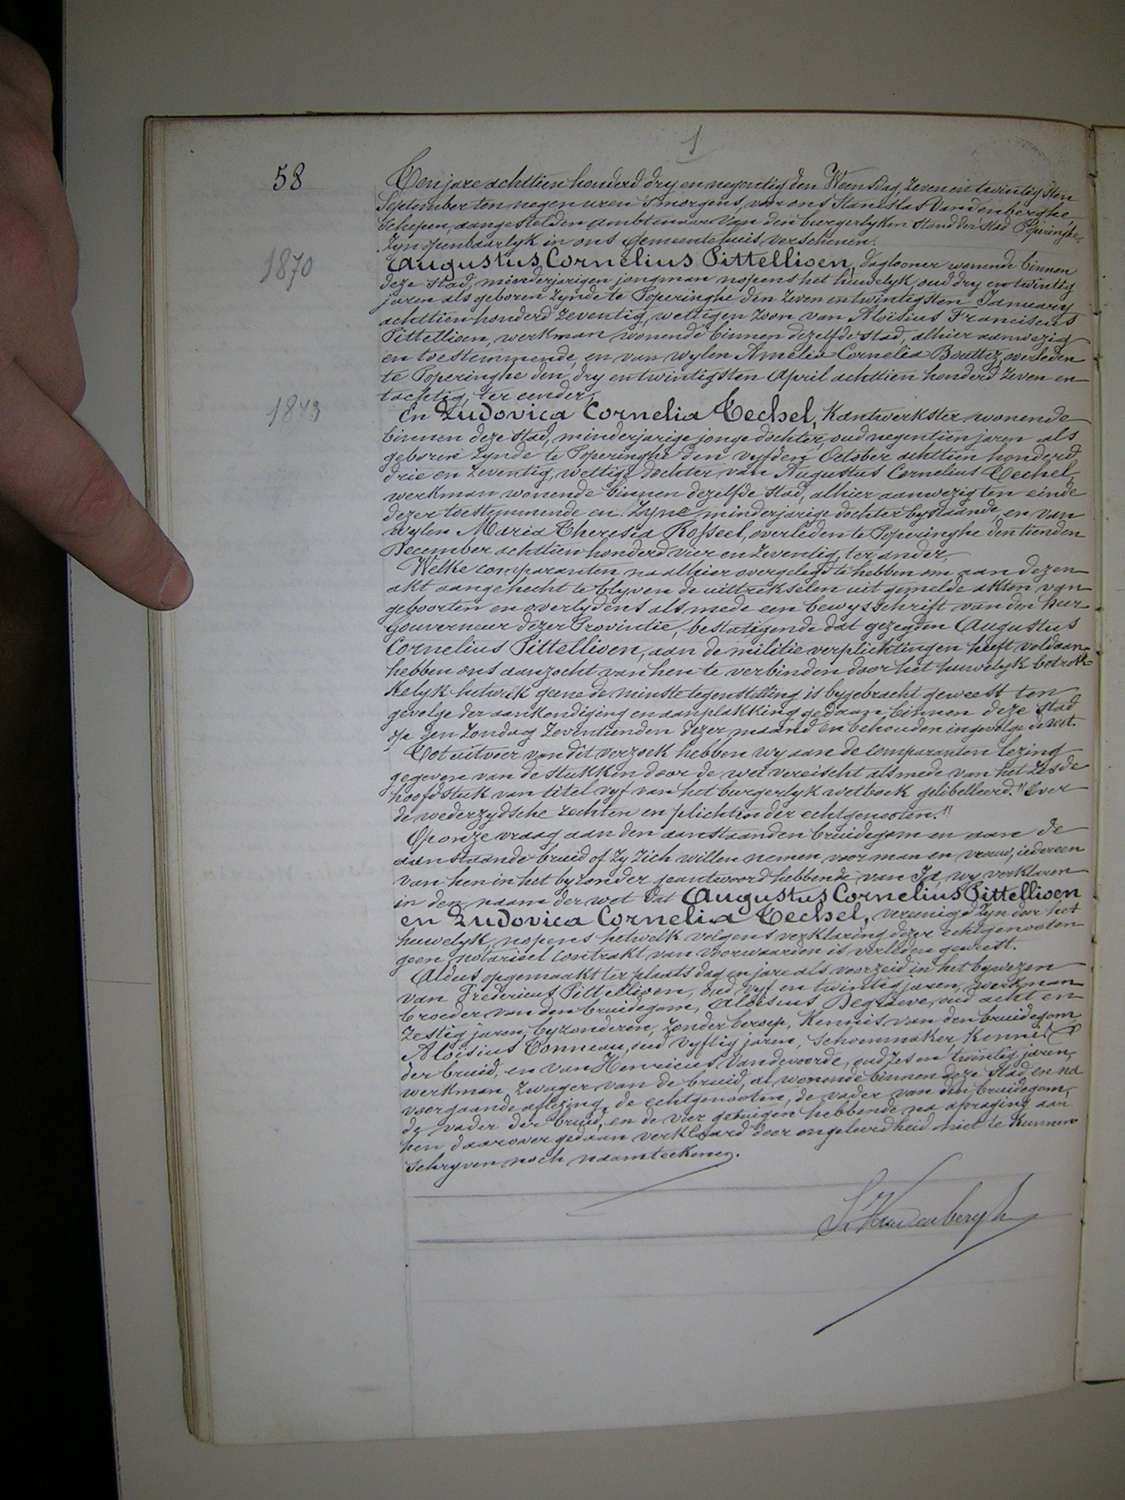 1
58
Ten jare achttien honderd dry en negentig den Weensdag, zeven en twintigsten
September ten negen uren 's morgens, voor ons Stanislas Vandenberghe
Schepen, aangestelden ambtenaar van den burgerlyken stand der stad Poperinghe,
zyn openbaarlyk in ons Gemeentehuis verschenen.
1870
Augustus Cornelius Pittellioen, daglooner wonende binnen
deze stad, minderjarigen jongman nopens het huwelyk, oud dry en twintig
jaren als geboren zynde te Poperinghe den zeven en twintigsten January
achttien honderd zeventig, wettigen zoon van Aloïsius Franciscus
Pittellioen, werkman wonende binnen dezelfde stad, alhier aanwezig
en toestemmende, en van wylen Amelia Cornelia overleden
te Poperinghe den dry en twintigsten April achttien honderd zeven en
tachtig, ter eender,
1873
En Ludovica Cornelia Techel, Kantwerkster wonende
binnen deze stad, minderjarige jonge dochter, oud negentien jaren als
geboren zynde te Poperinghe den vyfden October achttien honderd
drie en zeventig, wettige dochter van Augustus Cornelius Techel,
werkman wonende binnen dezelfde stad, alhier aanwezig ten einde
dezer toestemmende en zyne minderjarige dochter bystaande, en van
wylen Maria Theresia Rosseel, overleden te Poperinghe den tienden
December achttien honderd vier en zeventig, ter ander.
Welke comparanten na alhier overgelegd te hebben om aan dezen
akt aangehecht te blyven de uittrekselen uit gemelde akten van
geboorten en overlydens als mede een bewysschrift van den heer
Gouverneur dezer Provincie, bestatigende dat gezegden Augustus
Cornelius Pittellioen, aan de militie verplichtingen heeft voldaan
hebben ons aanzocht van hen te verbinden door het huwelyk betrek-
kelyk hetwelk geene de minste tegenstelling is bygebracht geweest ten
gevolge der aankondiging en aanplakking gedaan binnen deze stad
op den Zondag zeventienden dezer maand en behouden ingevolge de wet.
Tot uitvoer van dit verzoek hebben wy aan de comparanten lezing
gegeven van de stukken door de wet vereischt alsmede van het zesde
hoofdstuk van titel vyf van het burgerlyk wetboek gelibelleerd "Over
de wederzydsche rechten en plichten der echtgenooten."
Op onze vraag aan den aanstaanden bruidegom en aan de
aanstaande bruid of zy zich willen nemen voor man en vrouw, iedereen
van hen in het byzonder geantwoord hebbende van Ja, wy verklaren
in den naam der wet dat Augustus Cornelius Pittellioen
en Ludovica Cornelia Techel, vereenigd zyn door het
huwelyk, nopens hetwelk volgens verklaring dezer echtgenooten
geen notarieel contrakt van voorwaarden is verleden geweest.
Aldus opgemaakt ter plaats dag en jare als voorzeid in het bywezen
van Fredericus Pittellioen, oud vyf en twintig jaren, werkman
broeder van den bruidegom, Aloïsius Degraeve, oud acht en
zestig jaren, byzonderen, zonder beroep, Kennis van den bruidegom
Aloïsius Bonneau, oud vyftig jaren, schoenmaker, Kennis
der bruid, en van Henricus Vandevoorde, oud zes en twintig jaren,
werkman, zwager van de bruid, al wonende binnen deze stad, en na
voorgaande aflezing, de echtgenooten, de vader van den bruidegom,
de vader der bruid, en de vier getuigen hebbende na afvraging aan
hen daarover gedaan verklaard door ongeleerdheid niet te kunnen
schryven noch naamteekenen.
St. Vandenberghe